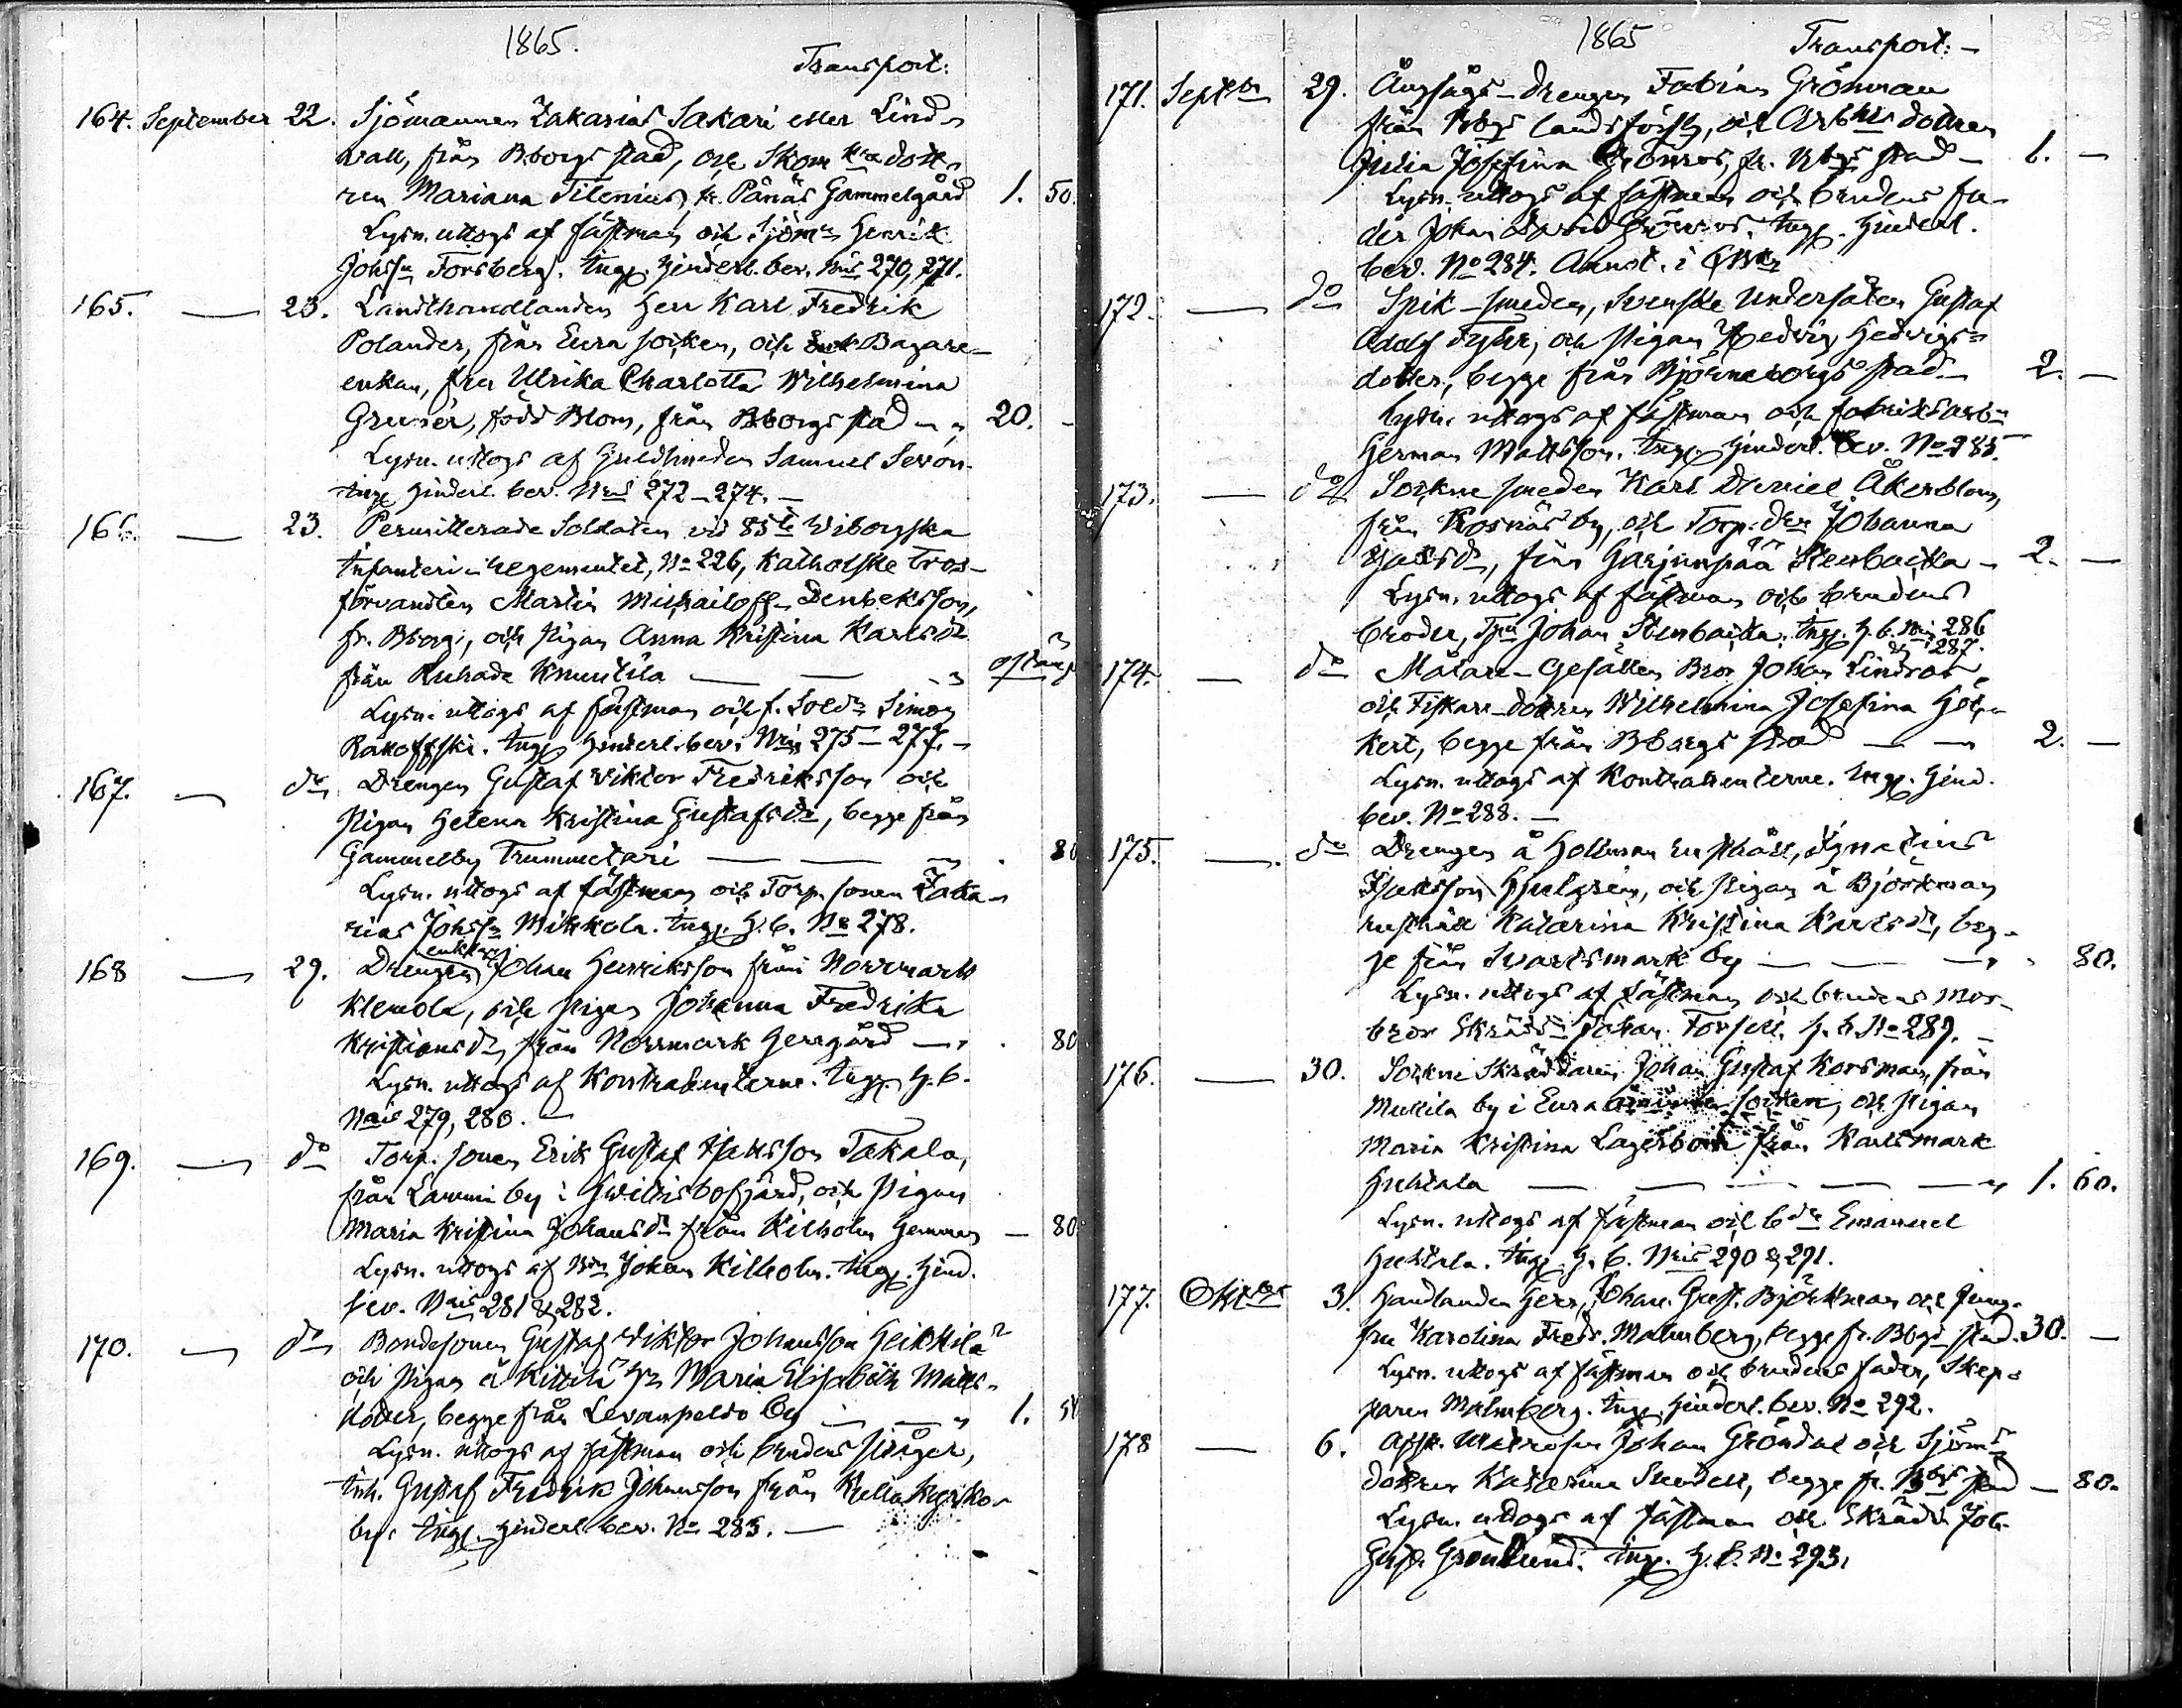 1865.
Transport:
164. September 22. Sjömannen Zakarias Sakari eller Lind-
wall, från Bborgs stad, och Skom kre dott-
ren Mariana Tilenius, fr. Pänäs Gammelgård 1. 50.
Lysn. uttogs af fästman och Sjömn Henrik
Johssn Forsberg. Ingp. hinderl. bev. Nris 270, 271.
165. — 23. Landthandlanden Herr Karl Fredrik
Polander, från Eura socken, och Bagare-
enkan, fru Ulrika Charlotta Wilhelmina
Grenér, född Blom, från Bborgs stad — 20. -
Lysn. uttogs af Guldsmeden Samuel Sevon.
Ingp. hinderl. bev. Nris 272-274. —
166. — 23. Permitterade Soldaten vid 85te Wiborgska
Infanteri-regementet, No 226, Katholske tros-
förvandten Martin Michailoff Denbeksson,
fr. Bborg, och pigan Anna Kristina Karlsdr
från Ruhade Knuutila — —
Lysn. uttogs af fästman och f. Soldn Simon
Rakoffski. Ingp. hinderl. bev. Nris 275-277. -
167. — do Drengen Gustaf Viktor Fredriksson och
Pigan Helena Kristina Gustafsdr, begge från
Gammelby Trummetari — — 80
Lysn. uttogs af fästman och Torp. sonen Zaka-
rias Johssn Mikkola. Ingp. H. b. No 278.
enkl.
168 — 29. Drengen Johan Henriksson från Norrmark
Klemola, och pigan Johanna Fredrika
Kristiansdr, från Norrmark Herrgård — 80
Lysn. uttogs af Kontrahenterne. Ingp. H. b.
Nris 279, 280. —
169. — do Torp. sonen Erik Gustaf Isaksson Takala,
från Lammi by i Hvittisbofjärd, och Pigan
Maria Kristina Johansdr från Kilholm Hemman — 80
Lysn. uttogs af Johan Kilholm. Ingp. Hind.
bev. Nris 281 & 282.
170. — do Bondesonen Gustaf Viktor Johansson Heikkilä
och Pigan å Kittilä Maria Elisabeth Matts-
dotter, begge från Levanpelto by — — 1.
Lysn. uttogs af fästman och brudens svåger,
Inh. Gustaf Fredrik Johansson från Kulla Kyrko-
by. Ingp. hinderl. bev. No 283. —
1865
Transport: -
171. Septbr 29. Ångsågs-drengen Fabian Grönman
från Bbgs landsförsg, och Arbkrs dottren
Julia Josefina Grönros, fr. Bbgs stad — 1. —
Lysn. uttogs af fästman och brudens fa-
der Johan David Grönros. Ingp. Hinderl.
bev. No 284. Annot. i
172. — do Spik-smeden, Svenske undersåten Gustaf
Adolf och pigan Hedvig Hedvigs-
dotter, begge från Björneborgs stad — 2. —
Lysn. uttogs af fästman och fabriksarb-n
Herman Mattsson. Ingp. Hinderl. bev. No 285.
173. — do Sockne smeden Karl Daniel Åkerblom,
från Kosnäs by, och Torp. dr Johanna
från Harjunpää Stenbacka — 2. —
Lysn. uttogs af fästman och brudens
broder, Johan Stenbacka. Ingp. H. b. Nris 286
& 287.
174. — do Målare-Gesällen Bror Johan Lindroos
och Fiskare-dottren Wilhelmina Josefina Höc-
kert, begge från Bborgs stad — — 2. —
Lysn. uttogs af Kontrahenterne. Ingp. Hind.
bev. No 288. —
175. — do Drengen å Hollman rusthåll, Ignatius
Isaksson och pigan å Björkman
rusthåll Katarina Kristina Karlsdr, beg-
ge från Svartsmark by — — 80.
Lysn. uttogs af fästman och brudens mor-
bror Skrädd Johan Forsell. H. b. No 289. -
176. — 30. Sockne Skräddaren Johan Gustaf Korsman, från
Mullila by i Eura socken, och pigan
Maria Kristina Lagerbohm från Karlsmark
Huhtala — — — 1. 60.
Lysn. uttogs af fästman och bdn Emanuel
Huhtala. Ingp. H. b. Nris 290 & 291.
177. Oktber 3. Handlanden Herr Johan Gust. Björkman och Jung-
fru Karolina Fredr. Malmberg, begge fr. Bbgs stad. 30. —
Lysn. uttogs af fästman och brudens fader, Skep-
paren Malmberg. Ingp. hinderl. bev. No 292.
178 — 6. Matrosen Johan Gröndal och Sjöms
dottren Katarina Sundell, begge fr. Bbgs stad — 80.
Lysn. uttogs af fästman och Skrädd. Joh.
Gust. Grönlund. Ingp. H. b. No 293.